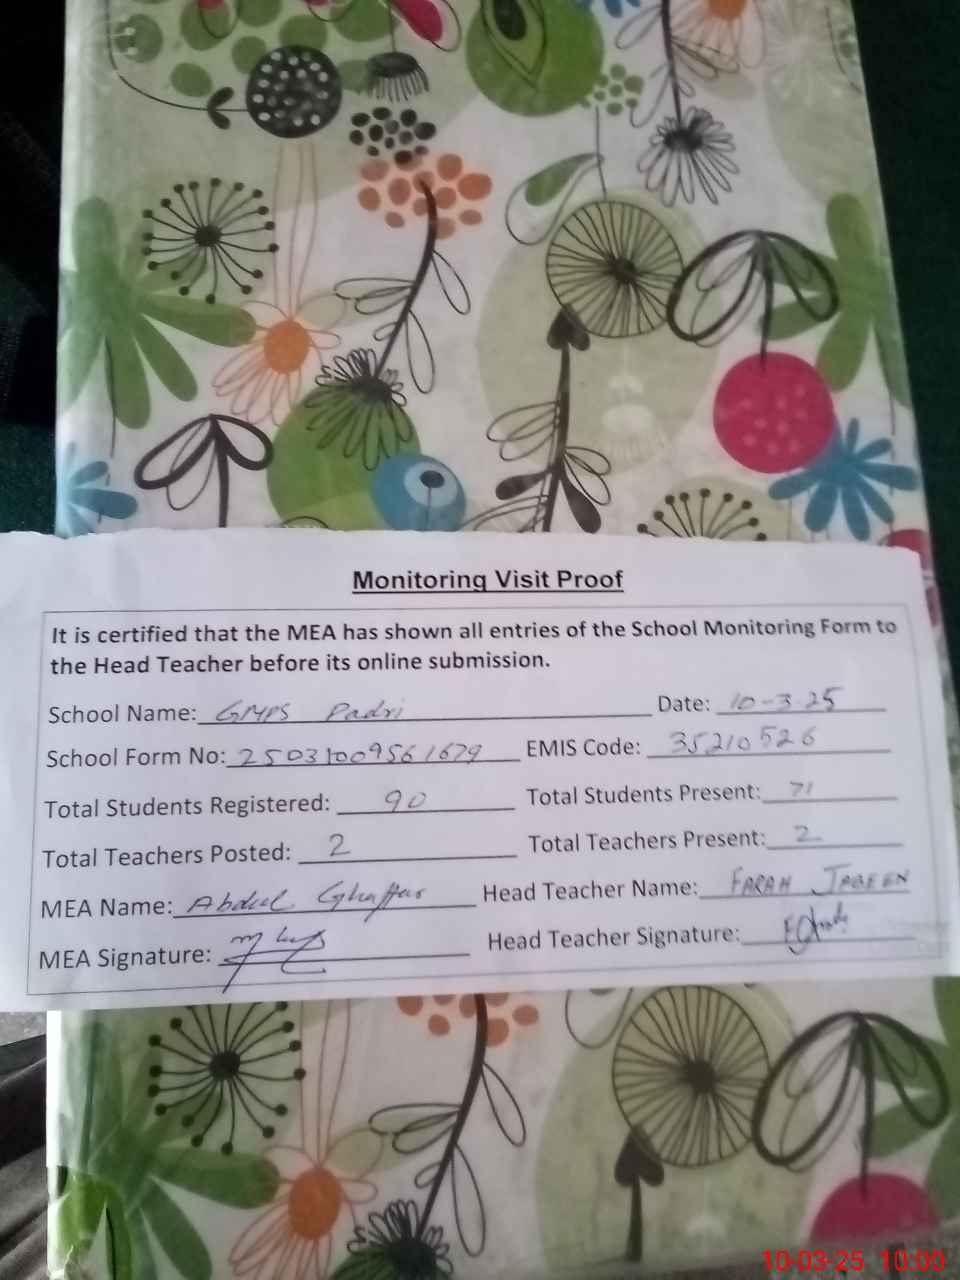 Monitoring Visit Proof
It is certified that the MEA has shown all entries of the School Monitoring Form to
the Head Teacher before its online submission.
School Name: GMPS Padri Date: 10-3-25
School Form No: 25031009561679 EMIS Code: 35210526
Total Students Registered: 90 Total Students Present: 71
Total Teachers Posted: 2 Total Teachers Present: 2
MEA Name: Abdul Ghaffar Head Teacher Name: FARAH JABEEN
MEA Signature: Head Teacher Signature:
10-03-25 10:00